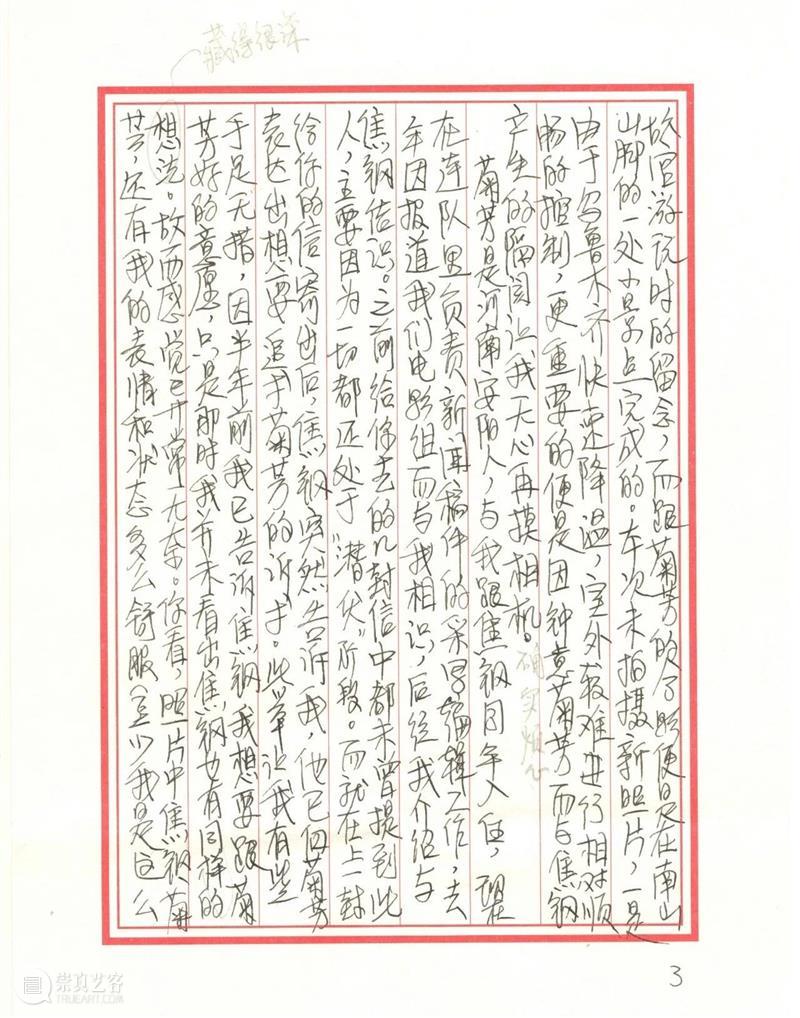 藏得很深
游玩时的留念，而跟菊芳的合影便是在南山
山脚的一处小景点完成的。本次未拍摄新照片，一是
由于乌鲁木齐快速降温，室外较难进行相对顺
畅的控制，更重要的便是因钟意菊芳而与焦钢
产生的隔阂让我无心再摸相机。确实烦心
菊芳是河南安阳人，与我跟焦钢同年入伍，现
在连队里负责新闻稿件的采写编辑工作，去
年因报道我们电影组而与我相识，后经我介绍与
焦钢结识。之前给你去的几封信中都未曾提到此
人，主要因为一切都还处于“潜伏”阶段。而就在上一封
给你的信寄出后，焦钢突然告诉我，他已向菊芳
表达出想要追求菊芳的诉求。此举让我有些
手足无措，因半年前我已告诉焦钢我想要跟菊
芳好的意愿，只是那时我并未看出焦钢也有同样的
想法。故而感觉异常无奈。你看，照片中焦钢、菊
芳，还有我的表情和状态多么舒服（至少我是这么
3
崇真艺客
TRUEART.COM